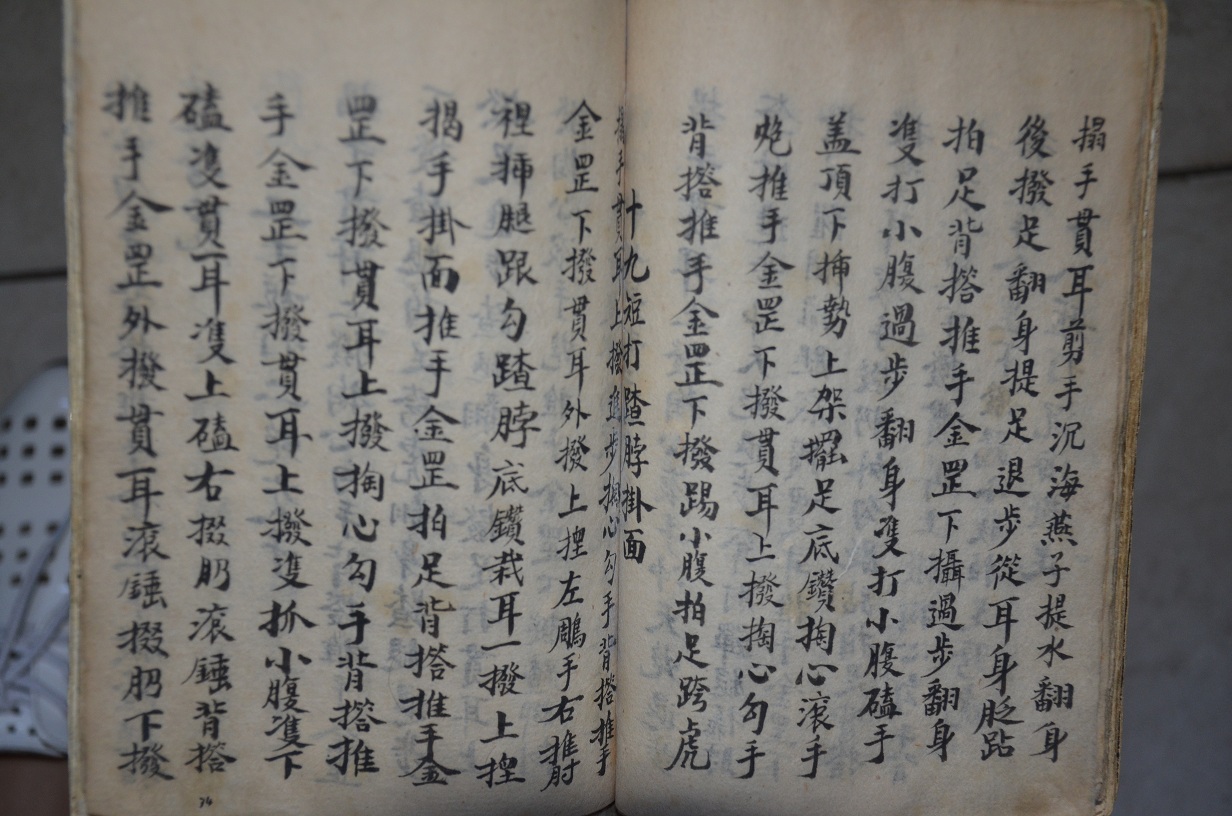 搨手貫耳剪手沉海燕子提水翻身
後撥足翻身提足退步從耳身眨跕
拍足背撘推手金罡下攝過步翻身
隻打小腹過步翻身隻打小腹磕手
盖頂下揷勢上架擺足底鑽掏心滾手
炮推手金罡下撥貫耳上撥掏心勾手
背撘推手金罡下撥踢小腹拍足跨虎
十九短打踏脖掛面
手貫耳上撥進步掏心勾手背撘推手
金罡下撥貫耳外撥上捚左雕手右推肘
裡揷腿跟勾踏脖底鑽栽耳一撥上捚
揭手掛面推手金罡拍足背撘推手金
罡下撥貫耳上撥掏心勾手背撘推
手金罡下撥貫耳上撥隻抓小腹隻下
磕隻貫耳隻上磕右掇肕滾錘背撘
推手金罡外撥貫耳滾錘掇肕下撥